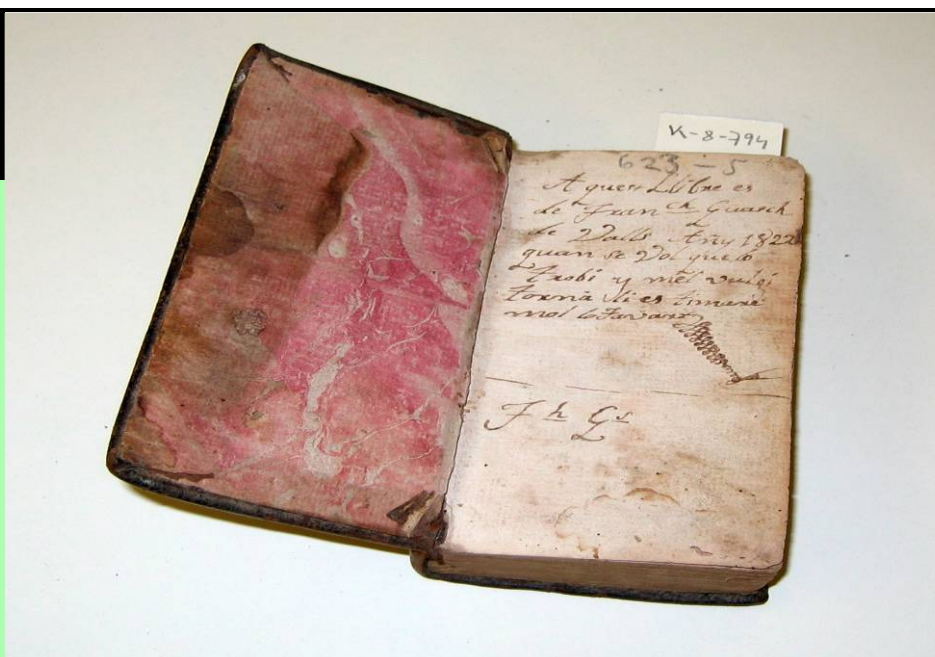 K-8-794
623-5
Aquest Llibre es
de Fran.ch Guasch
de Valls Añy 1822
quan se Vol quel
trobi y mel vulgi
torna li es timaré
mol
F h Gs